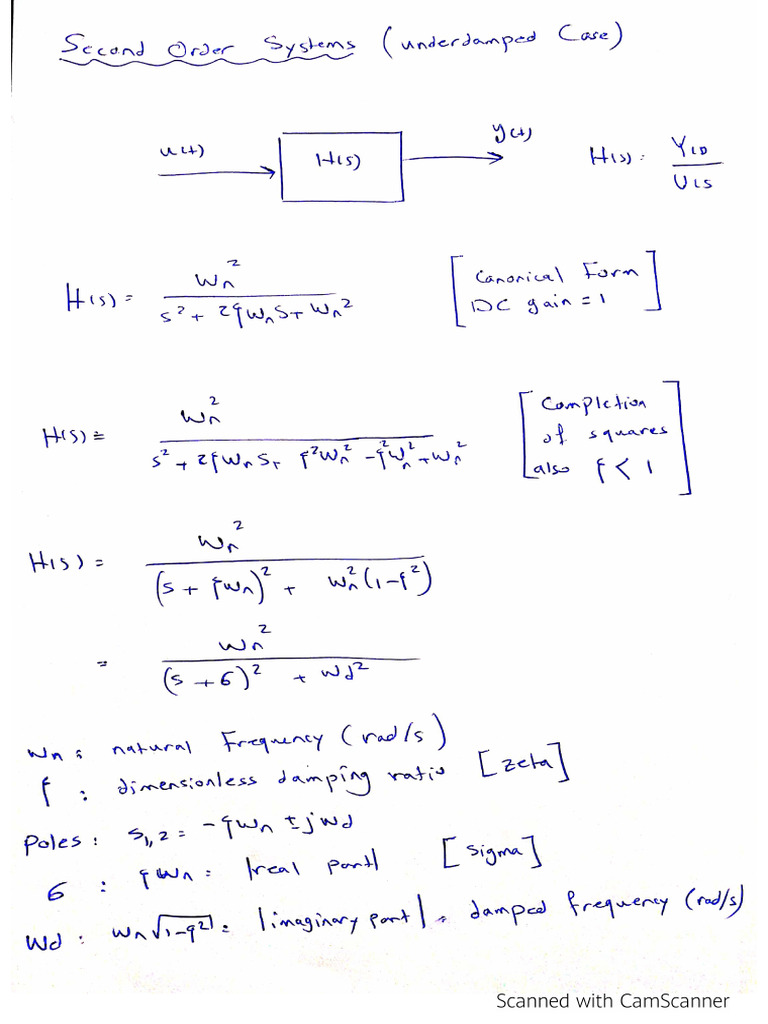 Second Order Systems (underdamped Case)
u(t) H(s) y(t) H(s) = Y(s) / U(s)
H(s) = ωn² / (s² + 2ζωn s + ωn²) [Canonical Form DC gain = 1]
H(s) = ωn² / (s² + 2ζωn s + ζ²ωn² - ζ²ωn² + ωn²) [Completion of squares also ζ < 1]
H(s) = ωn² / ((s + ζωn)² + ωn²(1-ζ²))
= ωn² / ((s + σ)² + ωd²)
ωn : natural Frequency (rad/s)
ζ : dimensionless damping ratio [zeta]
Poles : s1,2 = -ζωn ± jωd
σ : ζωn = |real part| [sigma]
ωd : ωn√(1-ζ²) = |imaginary part| = damped frequency (rad/s)
Scanned with CamScanner